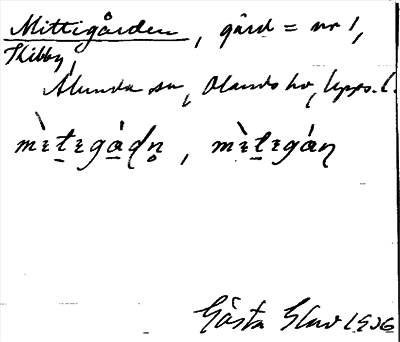 Mittigården, gård = nr 1,
Skibby,
Alunda sn, Olands hd, Upps. l.
mètegáḍn̥, mètegáṇ
Gösta 1936